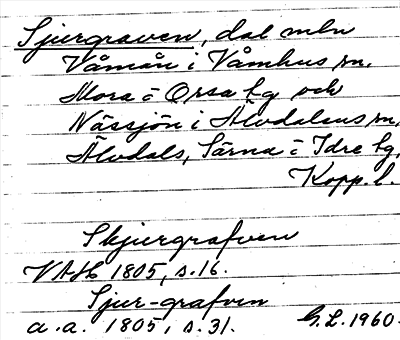 Sjurgraven, dal mln
Våmån i Våmhus sn.
Mora o Orsa tg och
Nässjön i Älvdalens sn,
Älvdals, Särna o Idre tg,
Kopp. l.
Skjurgrafven
VAH 1805, s. 16.
Sjur-grafven
a. a. 1805, s. 31. G. L. 1960.